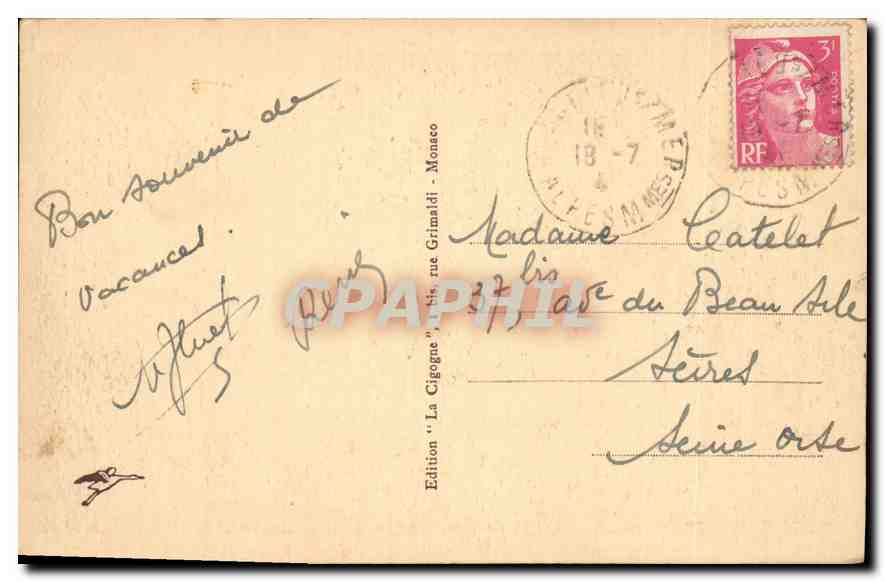 Bon souvenir de
vacances.
René
Edition "La Cigogne", 1 bis, rue Grimaldi - Monaco
18 -7
ALPES MMES
3F
RF
POSTES
Madame Catelet
37 bis, ave du Beau Site
Sèvres
Seine Oise
CPAPHIL